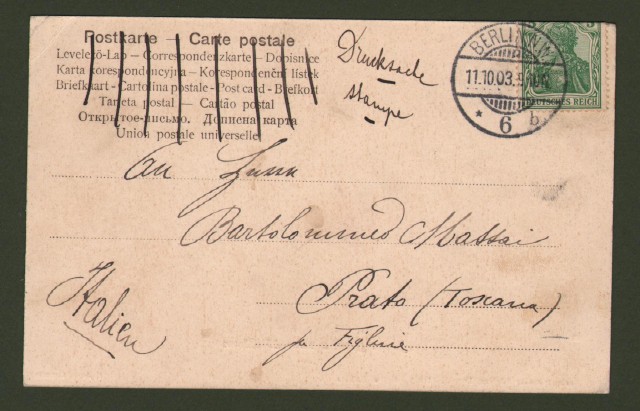 Postkarte – Carte postale
Levelező-Lap – Correspondenzkarte – Dopisnice
Karta korespondencyjna – Korespondenční lístek
Briefkaart – Cartolina postale – Post card – Brefkort
Tarjeta postal – Cartão postal
Открытое-письмо. Дописна карта
Union postale universelle
Drucksache
Stampe
BERLIN N.W.
11.10.03.
* 6 b
DEUTSCHES REICH
An
Bartolommeo Massai
Prato (Toscana)
Italien
per Figline